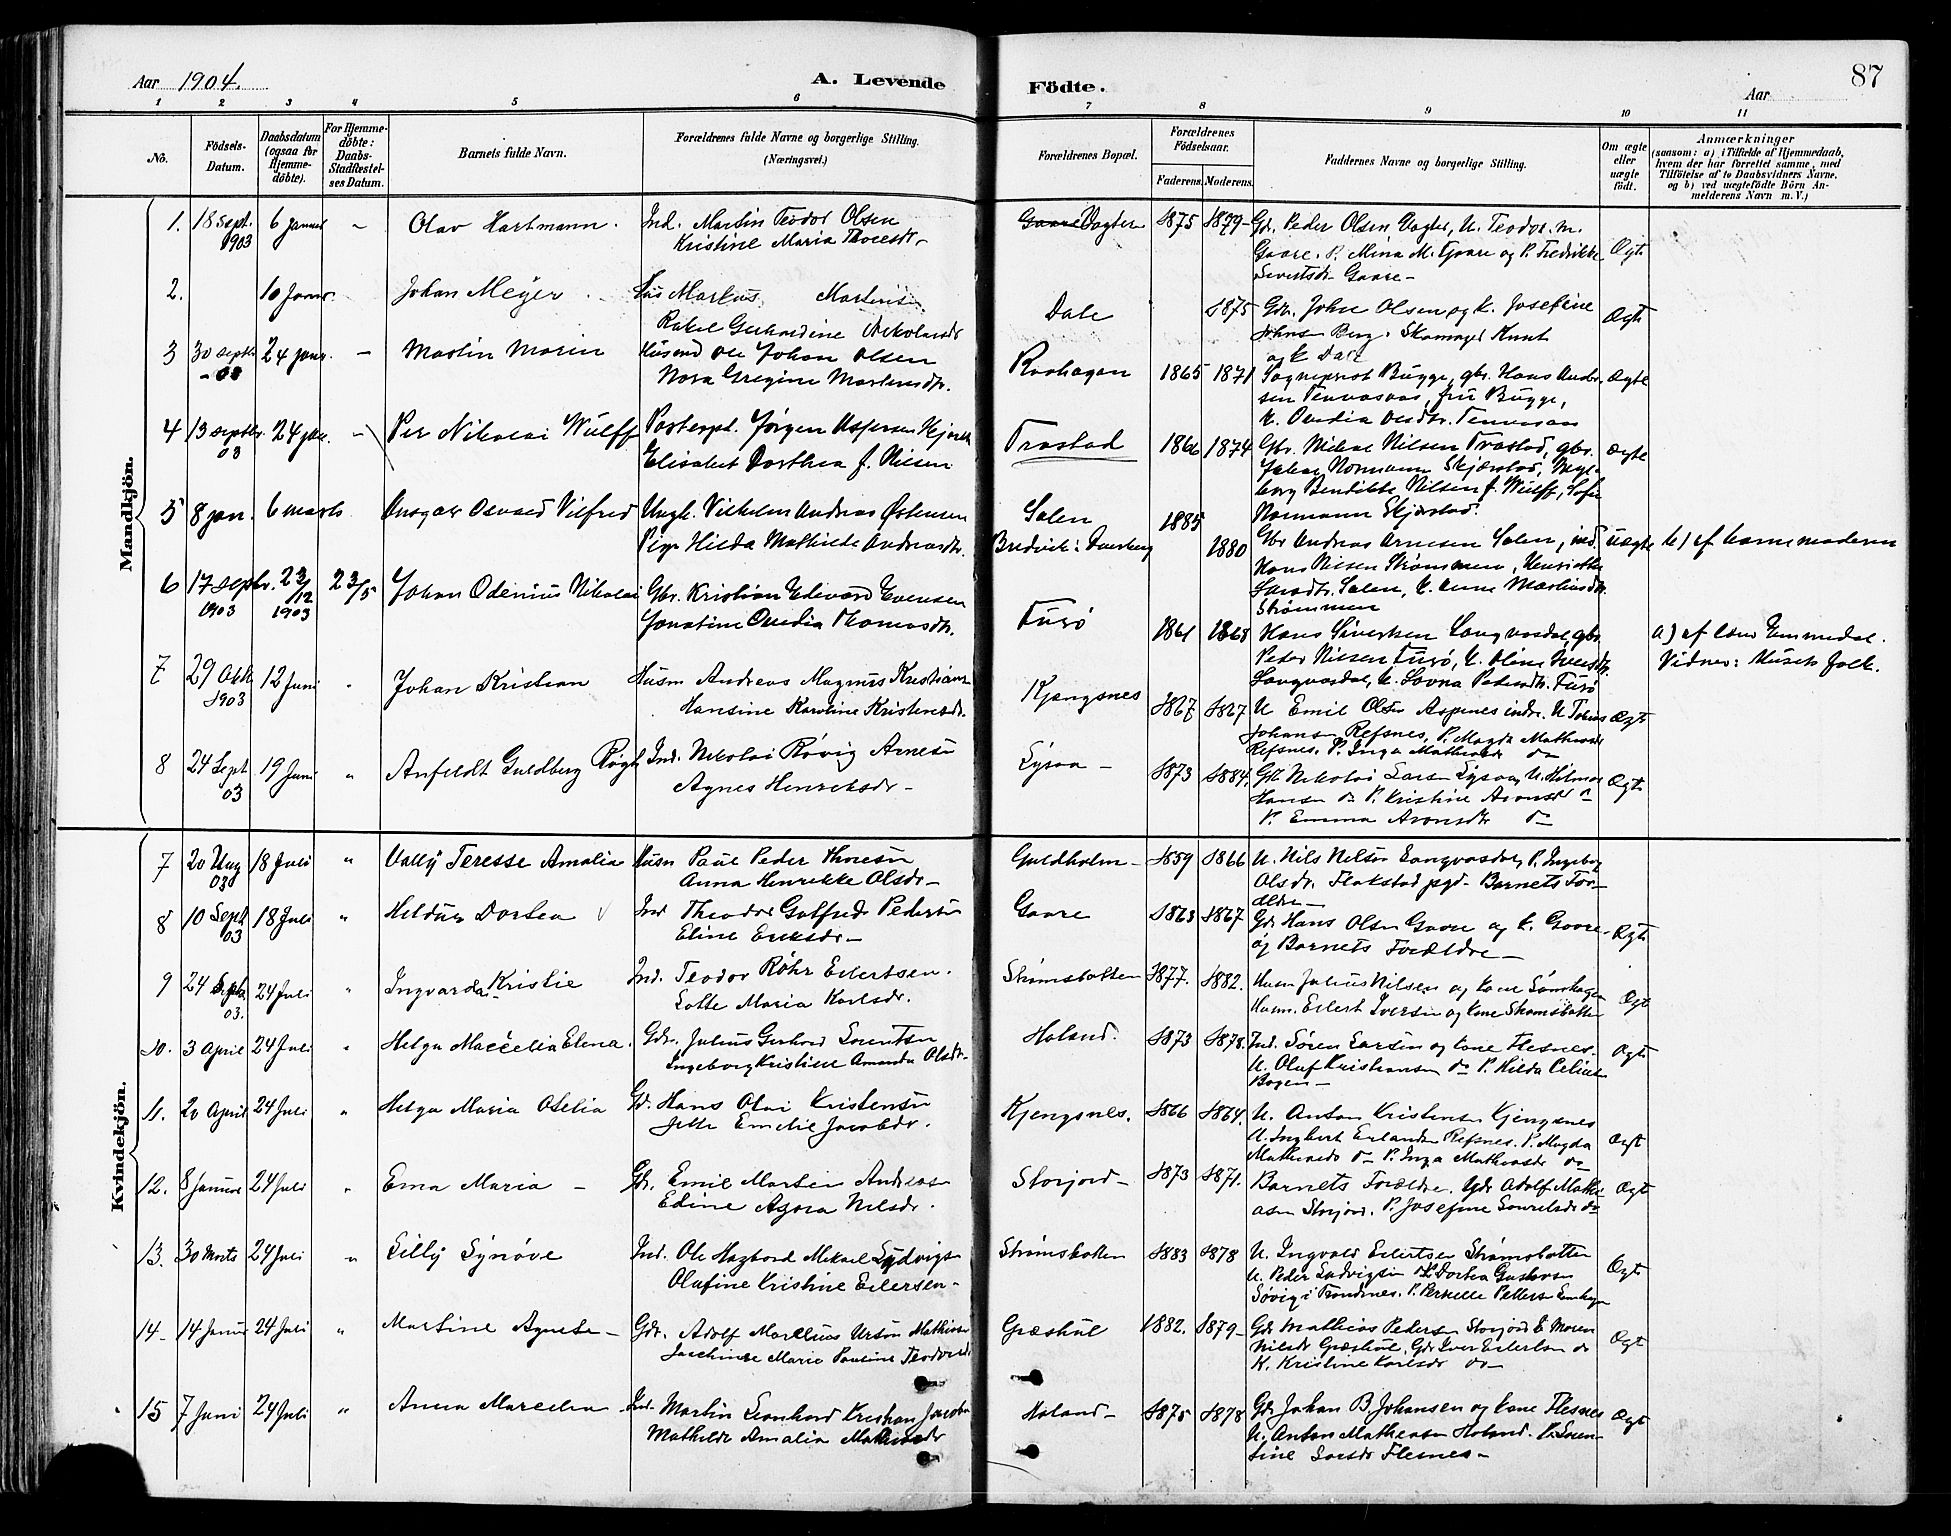 Aar 1904.
A. Levende
Födte.
Aar
87
1 2 3 4 5 6 7 8 9 10 11
No.
Födsels-
Datum.
Daabsdatum
(ogsaa for
Hjemme-
döbte).
For Hjemme-
döbte:
Daabs-
Stadfæstel-
ses Datum.
Barnets fulde Navn.
Forældrenes fulde Navne og borgerlige Stilling.
(Næringsvei.)
Forældrenes Bopæl.
Forældrenes
Födselsaar.
Faderens.
Moderens.
Faddernes Navne og borgerlige Stilling.
Om ægte
eller
uægte
födt.
Anmærkninger
(saasom: a) i Tilfælde af Hjemmedaab,
hvem der har forrettet samme, med
Tilföielse af to Daabsvidners Navne,
og b) ved uægtefödte Börn An-
melderens Navn m. V.)
Mandkjön.
1. 18 Sept. 6 Januar Olav Hartmann. Ind. Martin Teodor Olsen
1903 Kristine Maria
Gaare Vagter 1875 1879 Gdr. Peder Olsen Vagter, U. Teodor M.
Gaare, P. Mina M. Gaare og P. Fredrikke
Sivertsdr. Gaare
Ægt
2. 10 Januar Johan Meyer Hus Markus Martinsen
Rakel Gerhardine Nikolaisdr
Dale 1875 Gdr. Johan Olsen og k. Josefine
Berg, Skomager Knut
og k Dale
Ægt
3 30 septbr 24 janr. Martin Marin Husmd Ole Johan Olsen
03 Nora Gregine Martinsdtr.
Raahagen 1865 1871 Sogneprest Bugge, gbr. Hans Ander-
sen Tennvasaas, fru Bugge,
Ægte
4 13 septbr. 24 jan. Per Nikolai Wulff Jørgen Aspersen
03 Elisabet Dorthea f. Nilsen
Trastad 1866 1874 Gbr. Mikal Nilsen Trastad, gbr.
Normann Skjærstad, Inge-
borg Bendikke Nilsen f. Wulff, Sofie
Normann Skjærstad.
ægte
5 8 jan. 6 marts Ansgar Osvald Vilfred Ungk. Vilhelm Andreas Østensen
Pige Hilda Mathilde Andreasdtr.
Salen 1885
Bredvik i 1880 Gbr Andreas Arnesen Salen, ind.
Hans Nilsen Strømmen, Henriette
Larsdtr. Salen, k. Anne Martinsdtr.
Strømmen
uægte b) af barnemoderen
6 17 septbr. 23/12 23/5 Johan Odenius Nikolai Gbr. Kristian Edvard Evensen
1903 1903 Jonetine Ovedia Thomasdtr.
Furø 1861 1868 Hans Siversen Langvasdal, gbr.
Peder Nilsen Furø, k. Oline
Langvasdal, k. Lovna Pedersdtr. Furø
a) af Emmedal.
Vidner: Husets folk.
7 29 Okt 12 Juni Johan Kristian Husm Andreas Magnus Kristians
1903 Hansine Karoline Kristensdr.
Kjengsnes 1867 1867 U Emil Olsen Aspenes indr. U Tobias
Johansen Refsnes, P. Magda Mathisdr
Refsnes. P. Inga Mathisdr do
Ægt
8 24 Sept 19 Juni Anfeldt Guldberg Ind. Nikolai Røvig Arnesen
03 Agnes Henriksdr
Lysaa 1873 1884. Gdr Nikolai Larsen Lysaa, U. Hilmar
Hansen do P. Kristine Aronsdr do
P. Emma Aronsdr do
Ægt
Kvindekjön.
7 20 Aug 18 Juli Vally Teresse Amalia Husm Paul Peder Thoresen
03 Anna Henrikke Olsdr
Guldholm 1859 1866 U. Nils Nilsen Langvasdal, P. Ingeborg
Olsdr. Flakstad pgd. Barnets For-
ældre
8 10 Sept 18 Juli Heldur Dortea Ind Theodor Gotfred Pedersen
03 Eline Eriksdr
Gaare 1863 1867 Gdr Hans Olsen Gaare og k. Gaare
og Barnets Forældre
Ægt
9 24 Sept. 24 Juli Ingvarda Kristie Ind. Teodor Røhr Eilertsen.
03. Lotte Maria Karlsdr.
Strømsbotten 1877. 1882. Husm Julius Nilsen og kone
Husm. Eilert Iversen og kone Strømsbotten
Ægt
10. 3 April 24 Juli Helga Marcelia Elena. Gdr. Julius Gerhard Lorentsen
Ingeborg Kristine Amanda Olsdr
Holand. 1873 1878. Ind. Søren Larsen og kone Flesnes.
U. Oluf Kristiansen do P. Hilda
Bogen
Ægt
11. 20 April 24 Juli Helga Maria Otelia Gd. Hans Olai Kristensen
Jette Emelie Jacobdr.
Kjengsnes. 1866 1864. U. Anton Kristensen Kjengsnes
U. Ingbert Erlandsen Refsnes. P. Magda
Mathisdr do P. Inga Mathisdr do
Ægt
12. 8 Januar 24 Juli Ema Maria Gdr. Emil Martin Andreas
Edine Agora Nilsdr.
Storjord 1873 1871. Barnets Forældre, Gdr Adolf Mathi-
asen Storjord. P. Josefine do
Ægt
13. 30 Marts 24 Juli Lilly Synøve Ind. Ole Hagbard Mikael Lydvigsen
Olufine Kristine Eilersen
Strømsbotten 1883 1878 U. Ingvald Eilertsen Strømsbotten
U. Peder Ludvigsen Dortea Gustavsen
Søvig i Trondenes. P. Pernelle
Ægt
14 14 Januar 24 Juli Martine Agneta Gdr. Adolf Marelius Mathisen
Marie Pauline
Græshul 1882. 1879 Gdr Mathias Pedersen Storjord k Maren
Nilsdr Græshul, Gdr Iver Eilertsen do
K. Kristine Karlsdr do
Ægt
15 7 Juni 24 Juli Anna Marcelia Ind. Martin Leonhard Kristian
Mathilde Amalia
Holand 1875 1878 Gdr Johan B. Johansen og kone Flesnes
U. Anton Mathesen Holand. P. Loren-
tine Larsdr Flesnes
Ægt